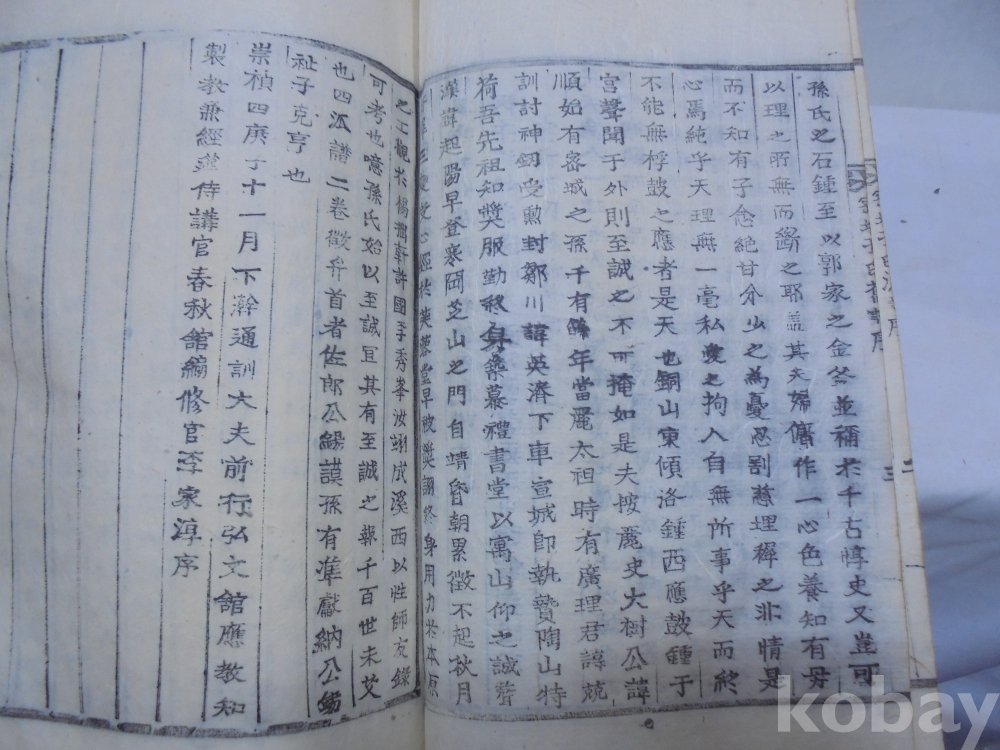 孫氏之石鍾至以郭家之金釜並稱於千古惇史又豈可
以理之所無而謂之耶盖其夫婦傭作一心色養知有母
而不知有子念絶甘分少之為憂忍割慈埋穉之非情是
心焉純乎天理無一毫私愛之拘入自無所事乎天而終
不能無桴鼓之應者是天也銅山東傾洛鍾西應鼓鍾于
宮聲聞于外則至誠之不可掩如是夫按麗史大樹公諱
順始有密城之孫千有餘年當麗太祖時有廣理君諱兢
訓討神釰受勲封鄒川諱英濟下車宣城師執贄陶山特
荷吾先祖知奬服勤終身築慕禮書堂以寓山仰之誠聱
漢諱起陽早登寒岡芝山之門自靖昏朝累徵不起秋月
心經於芙蓉堂早被奬詡終身用力於本原
之工觀於楊 軒許國李秀峯汝翊成溪西以性師友錄
可考也噫孫氏始以至誠冝其有至誠之報千百世未艾
也四派譜二卷徵弁首者佐郎公錫謨孫有準獻納公錫
祉子克亨也
崇禎四庚子十一月下澣通訓大夫前行弘文舘應教知
製教兼經筵侍講官春秋舘編修官李家淳序
kobay